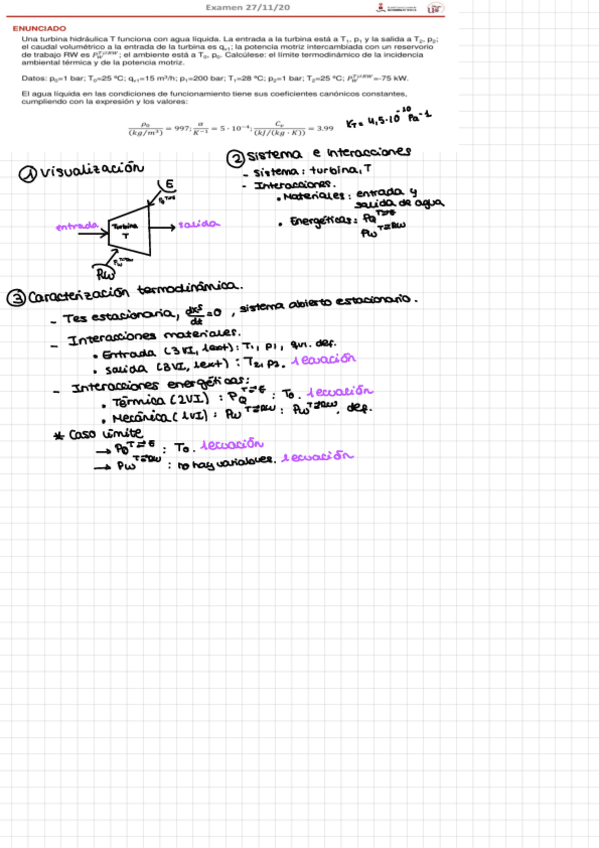 Examen 27/11/20
ENUNCIADO
Una turbina hidráulica T funciona con agua líquida. La entrada a la turbina está a T₁, p₁ y la salida a T₂, p₂;
el caudal volumétrico a la entrada de la turbina es qᵥ₁; la potencia motriz intercambiada con un reservorio
de trabajo RW es P_W^{T⇄RW}; el ambiente está a T₀, p₀. Calcúlese: el límite termodinámico de la incidencia
ambiental térmica y de la potencia motriz.
Datos: p₀=1 bar; T₀=25 ºC; qᵥ₁=15 m³/h; p₁=200 bar; T₁=28 ºC; p₂=1 bar; T₂=25 ºC; P_W^{T⇄RW}=-75 kW.
El agua líquida en las condiciones de funcionamiento tiene sus coeficientes canónicos constantes,
cumpliendo con la expresión y los valores:
ρ₀/(kg/m³) = 997; α/K⁻¹ = 5 · 10⁻⁴; Cₚ/(kJ/(kg · K)) = 3.99
K_T = 4,5·10⁻¹⁰ Pa⁻¹
① Visualización
E
entrada
Turbina
T
salida
RW
② Sistema e Interacciones
- Sistema: turbina, T
- Interacciones.
• Materiales: entrada y
salida de agua
• Energéticas: P_Q^{T⇄E}
P_W^{T⇄RW}
③ Caracterización termodinámica.
- T es estacionaria, dx^s/dt = 0, sistema abierto estacionario.
- Interacciones materiales.
• Entrada (3VI, 1ext): T₁, p₁, qv₁. def.
• Salida (3VI, 1ext): T₂, p₂. 1 ecuación
- Interacciones energéticas:
• Térmica (2VI): P_Q^{T⇄E}: T₀. 1 ecuación
• Mecánica (1VI): P_W^{T⇄RW}: P_W^{T⇄RW}. def.
* Caso límite
→ P_Q^{T⇄E}: T₀. 1 ecuación
→ P_W^{T⇄RW}: no hay variables. 1 ecuación